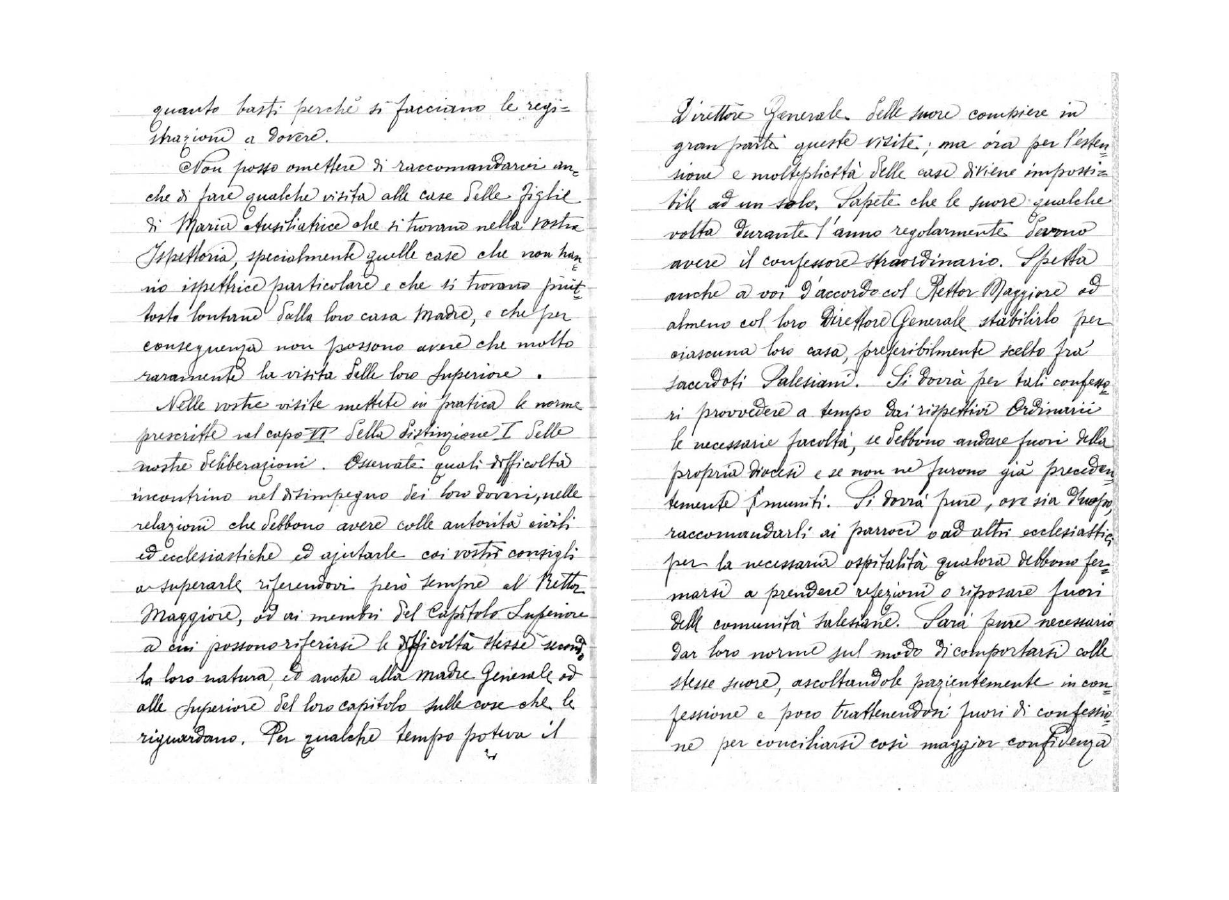 quanto basti perchè si facciano le regi=
strazioni a dovere.
Non posso omettere di raccomandarvi an=
che di fare qualche visita alle case delle Figlie
di Maria Ausiliatrice che si trovano nella vostra
Ispettoria, specialmente quelle case che non han=
no ispettrice particolare e che si trovano piut=
tosto lontane dalla loro casa Madre, e che per
conseguenza non possono avere che molto
raramente la visita delle loro Superiore.
Nelle vostre visite mettete in pratica le norme
prescritte nel capo VI della distinzione I delle
nostre deliberazioni. Osservate quali difficoltà
incontrino nel disimpegno dei loro doveri, nelle
relazioni che debbono avere colle autorità civili
ed ecclesiastiche ed ajutarle coi vostri consigli
a superarle riferendovi però sempre al Rettor
Maggiore, od ai membri del Capitolo Superiore
a cui possono riferirsi le difficoltà stesse secondo
la loro natura, ed anche alla Madre Generale od
alle Superiore del loro capitolo sulle cose che le
riguardano. Per qualche tempo poteva il
Direttore Generale delle suore compiere in
gran parte queste visite; ma ora per l'esten=
sione e molteplicità delle case diviene impossi=
bile ad un solo. Sapete che le suore qualche
volta durante l'anno regolarmente devono
avere il confessore straordinario. Spetta
anche a voi d'accordo col Rettor Maggiore od
almeno col loro Direttore Generale stabilirlo per
ciascuna loro casa, preferibilmente scelto fra
sacerdoti Salesiani. Si dovrà per tali confesso=
ri provvedere a tempo dai rispettivi Ordinarii
le necessarie facoltà, se debbono andare fuori della
propria diocesi e se non ne furono già preceden=
temente muniti. Si dovrà pure, ove sia d'uopo,
raccomandarli ai parroci o ad altri ecclesiastici
per la necessaria ospitalità qualora debbono fer=
marsi a prendere refezioni o riposare fuori
delle comunità salesiane. Sarà pure necessario
dar loro norme sul modo di comportarsi colle
stesse suore, ascoltandole pazientemente in con=
fessione e poco trattenendosi fuori di confessio=
ne per conciliarsi così maggior confidenza